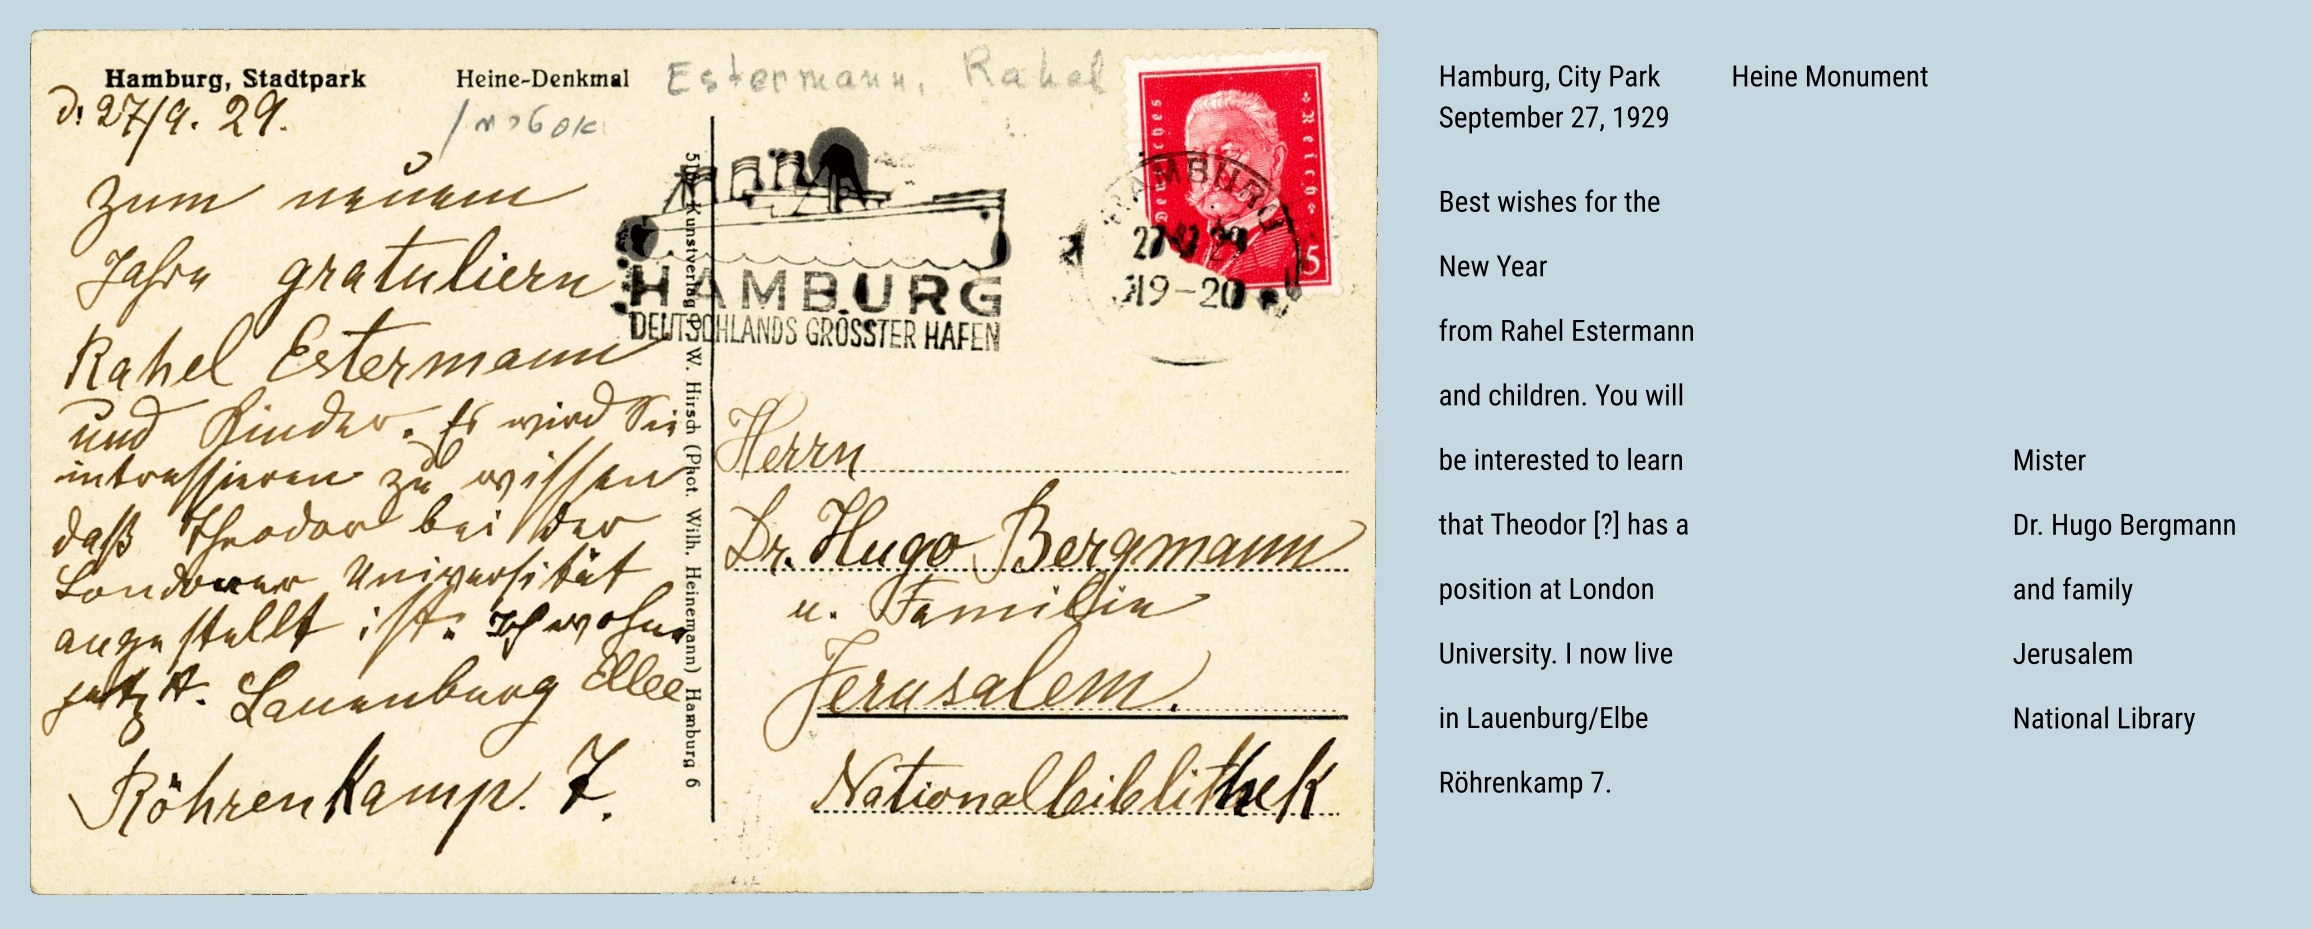 Hamburg, Stadtpark
Heine-Denkmal
Estermann, Rahel
d. 27/9. 29.
Zum neuem
Jahre gratuliern
Rahel Estermann
und Kinder. Es wird Sie
intressieren zu wissen
daß Theodor bei der
Londoner Universität
angestellt ist. Ich wohne
jetzt. Lauenburg Elbe
Röhrenkamp. 7.
Kunstverlag W. Hirsch (Phot. Wilh. Heinemann) Hamburg 6
HAMBURG
DEUTSCHLANDS GRÖSSTER HAFEN
Deutsches Reich
5
HAMBURG
19-20
Herrn
Dr. Hugo Bergmann
u. Familie
Jerusalem.
Nationalbiblithek
Hamburg, City Park
Heine Monument
September 27, 1929
Best wishes for the
New Year
from Rahel Estermann
and children. You will
be interested to learn
that Theodor [?] has a
position at London
University. I now live
in Lauenburg/Elbe
Röhrenkamp 7.
Mister
Dr. Hugo Bergmann
and family
Jerusalem
National Library